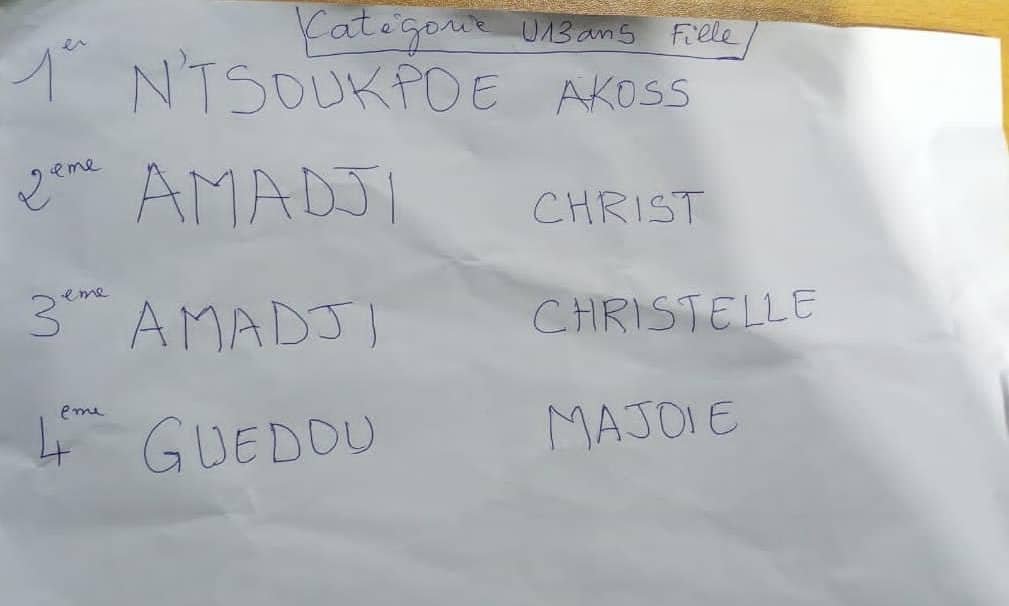 Catégorie U13 ans Fille
1er N'TSOUKPOE AKOSS
2eme AMADJI CHRIST
3eme AMADJI CHRISTELLE
4eme GUEDOU MAJOIE